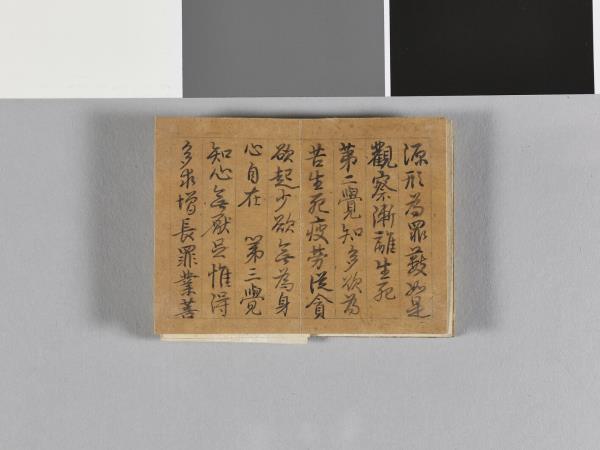 源形為罪藪如是
觀察漸離生死
第二覺知多欲為
苦生死疲勞從貪
欲起少欲無為身
心自在 第三覺
知心無厭足惟得
多求增長罪業菩